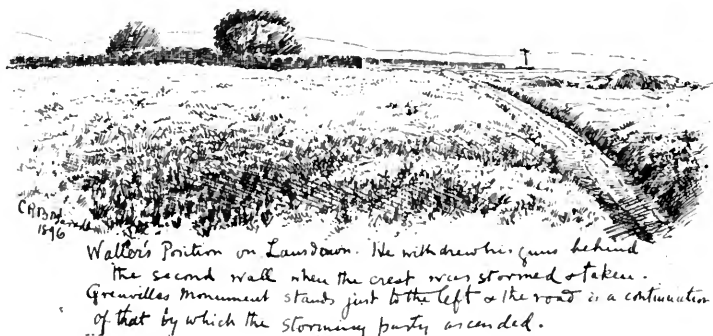 1896
Waller's Position on Lansdown. He withdrew his guns behind
the second wall when the crest was stormed & taken.
Grenvilles Monument stands just to the left & the road is a continuation
of that by which the storming party ascended.